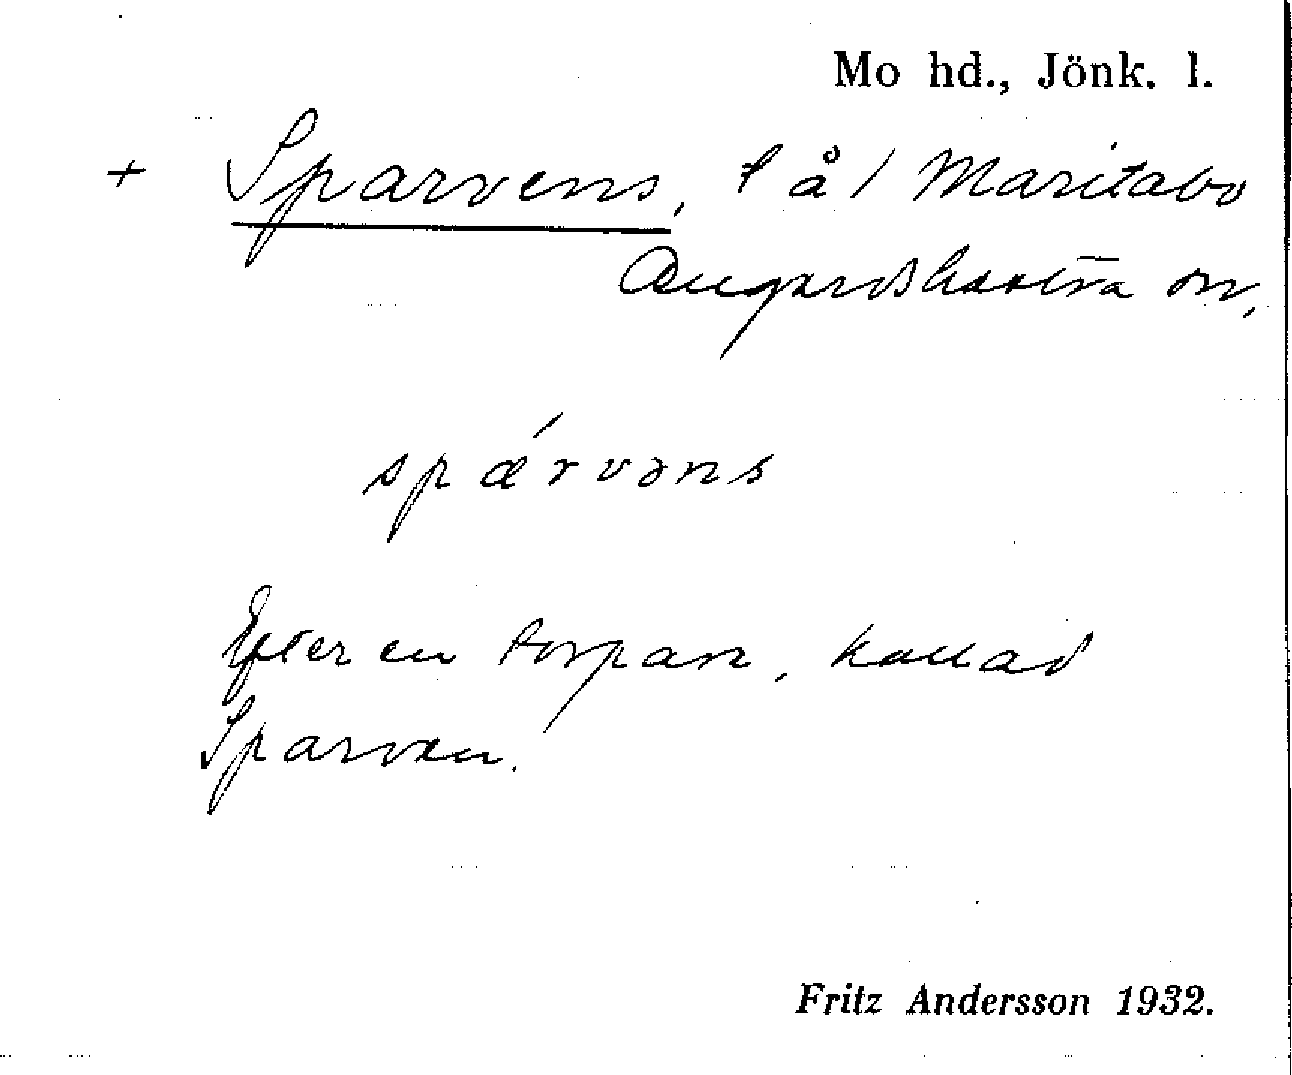 Mo hd., Jönk. l.
+ Sparvens, l å / Maritabo
Bugardshestra sn,
spǽrvəns
Efter en torpare, kallad
Sparven.
Fritz Andersson 1932.